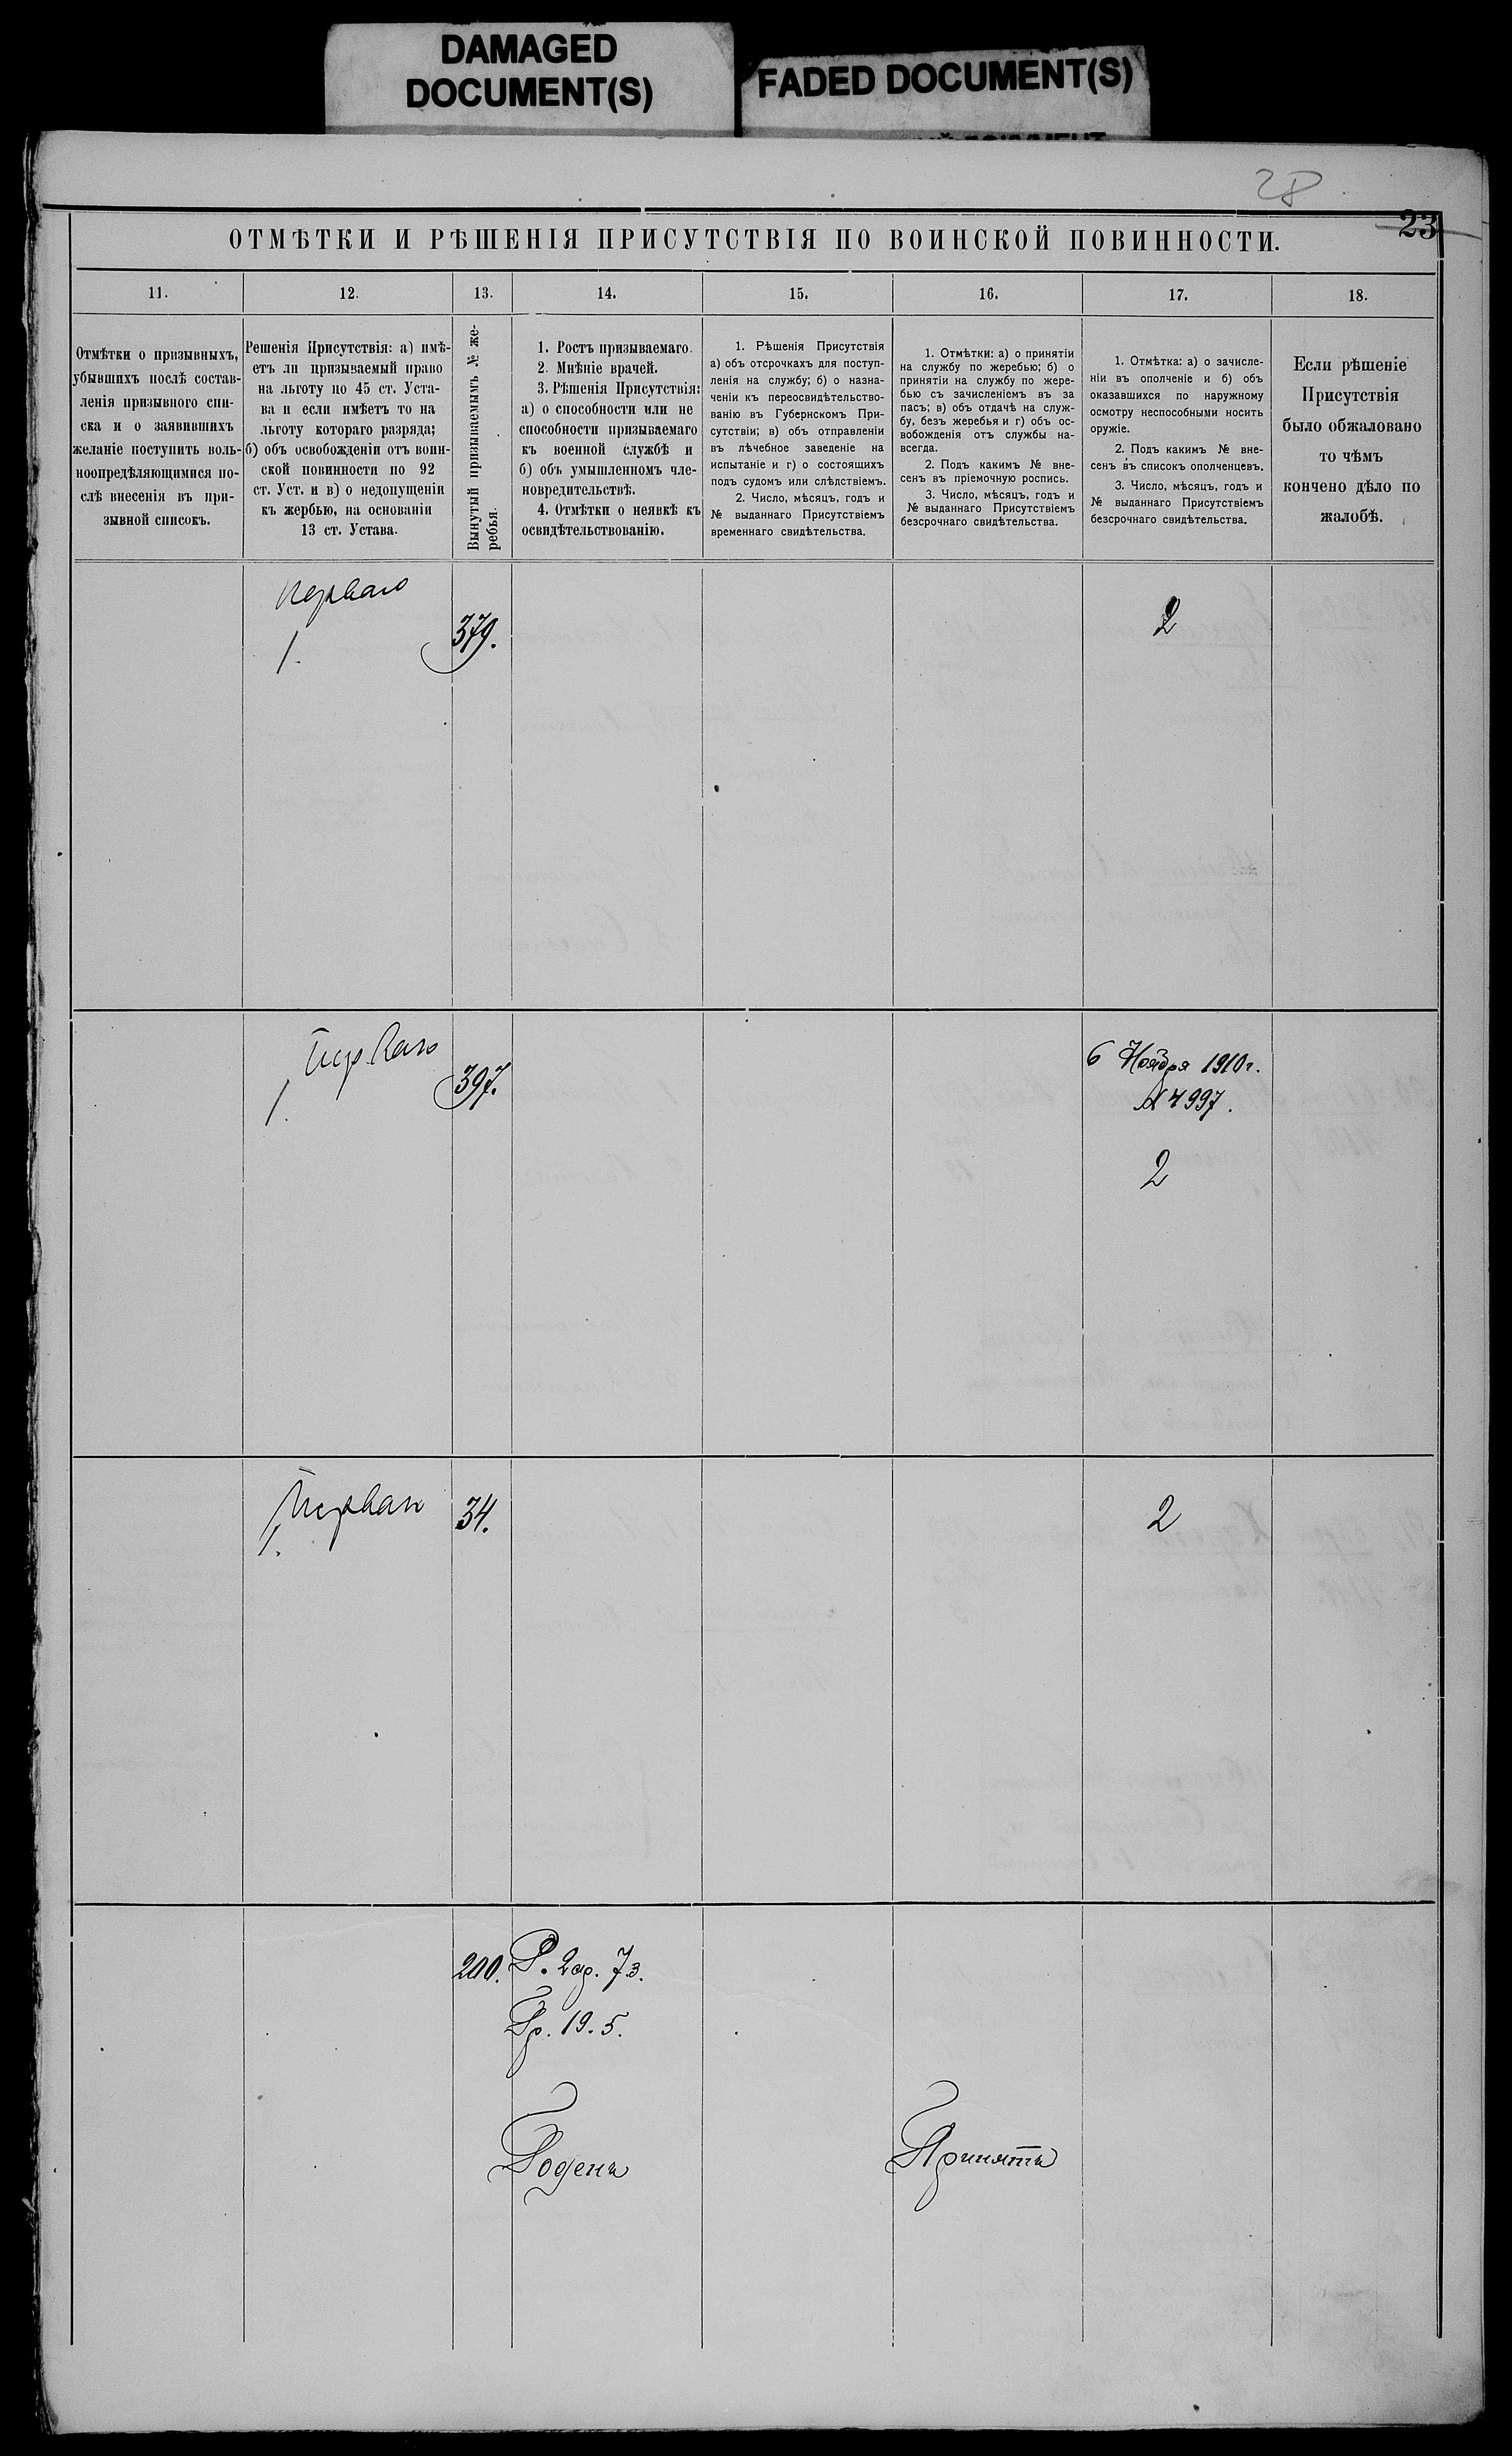 DAMAGED
DOCUMENT(S)
FADED DOCUMENT(S)
28
23
ОТМѢТКИ И РѢШЕНІЯ ПРИСУТСТВІЯ ПО ВОИНСКОЙ ПОВИННОСТИ.
11.
12.
13.
14.
15.
16.
17.
18.
Отмѣтки о призывныхъ,
убывшихъ послѣ состав-
ленія призывного спи-
ска и о заявившихъ
желаніе поступить воль-
ноопредѣляющимися по-
слѣ внесенія въ при-
зывной списокъ.
Решенія Присутствія: а) имѣ-
етъ ли призываемый право
на льготу по 45 ст. Уста-
ва и если имѣетъ то на
льготу котораго разряда;
б) объ освобожденіи отъ воин-
ской повинности по 92
ст. Уст. и в) о недопущеніи
къ жербью, на основаніи
13 ст. Устава.
Вынутый призываемымъ № же-
ребья.
1. Ростъ призываемаго.
2. Мнѣніе врачей.
3. Рѣшенія Присутствія:
а) о способности или не
способности призываемаго
къ военной службѣ и
б) объ умышленномъ чле-
новредительствѣ.
4. Отмѣтки о неявкѣ къ
освидѣтельствованію.
1. Рѣшенія Присутствія
а) объ отсрочкахъ для поступ-
ленія на службу; б) о назна-
ченіи къ переосвидѣтельство-
ванію въ Губернскомъ При-
сутствіи; в) объ отправленіи
въ лѣчебное заведеніе на
испытаніе и г) о состоящихъ
подъ судомъ или слѣдствіемъ.
2. Число, мѣсяцъ, годъ и
№ выданнаго Присутствіемъ
временнаго свидѣтельства.
1. Отмѣтки: а) о принятіи
на службу по жеребью; б) о
принятіи на службу по жере-
бью съ зачисленіемъ въ за
пасъ; в) объ отдачѣ на служ-
бу, безъ жеребья и г) объ ос-
вобожденія отъ службы на-
всегда.
2. Подъ какимъ № вне-
сенъ въ пріемочную роспись.
3. Число, мѣсяцъ, годъ и
№ выданнаго Присутствіемъ
безсрочнаго свидѣтельства.
1. Отмѣтка: а) о зачисле-
ніи въ ополченіе и б) объ
оказавшихся по наружному
осмотру неспособными носить
оружіе.
2. Подъ какимъ № вне-
сенъ въ списокъ ополченцевъ.
3. Число, мѣсяцъ, годъ и
№ выданнаго Присутствіемъ
безсрочнаго свидѣтельства.
Если рѣшеніе
Присутствія
было обжаловано
то чѣмъ
кончено дѣло по
жалобѣ.
перваго
1.
379.
2
перваго
1.
397.
6 Ноября 1910 г.
№ 7997.
2
перваго
1.
34.
2
200.
Р. 2 ар. 7 3.
Гр. 19.5.
Годенъ
Принятъ